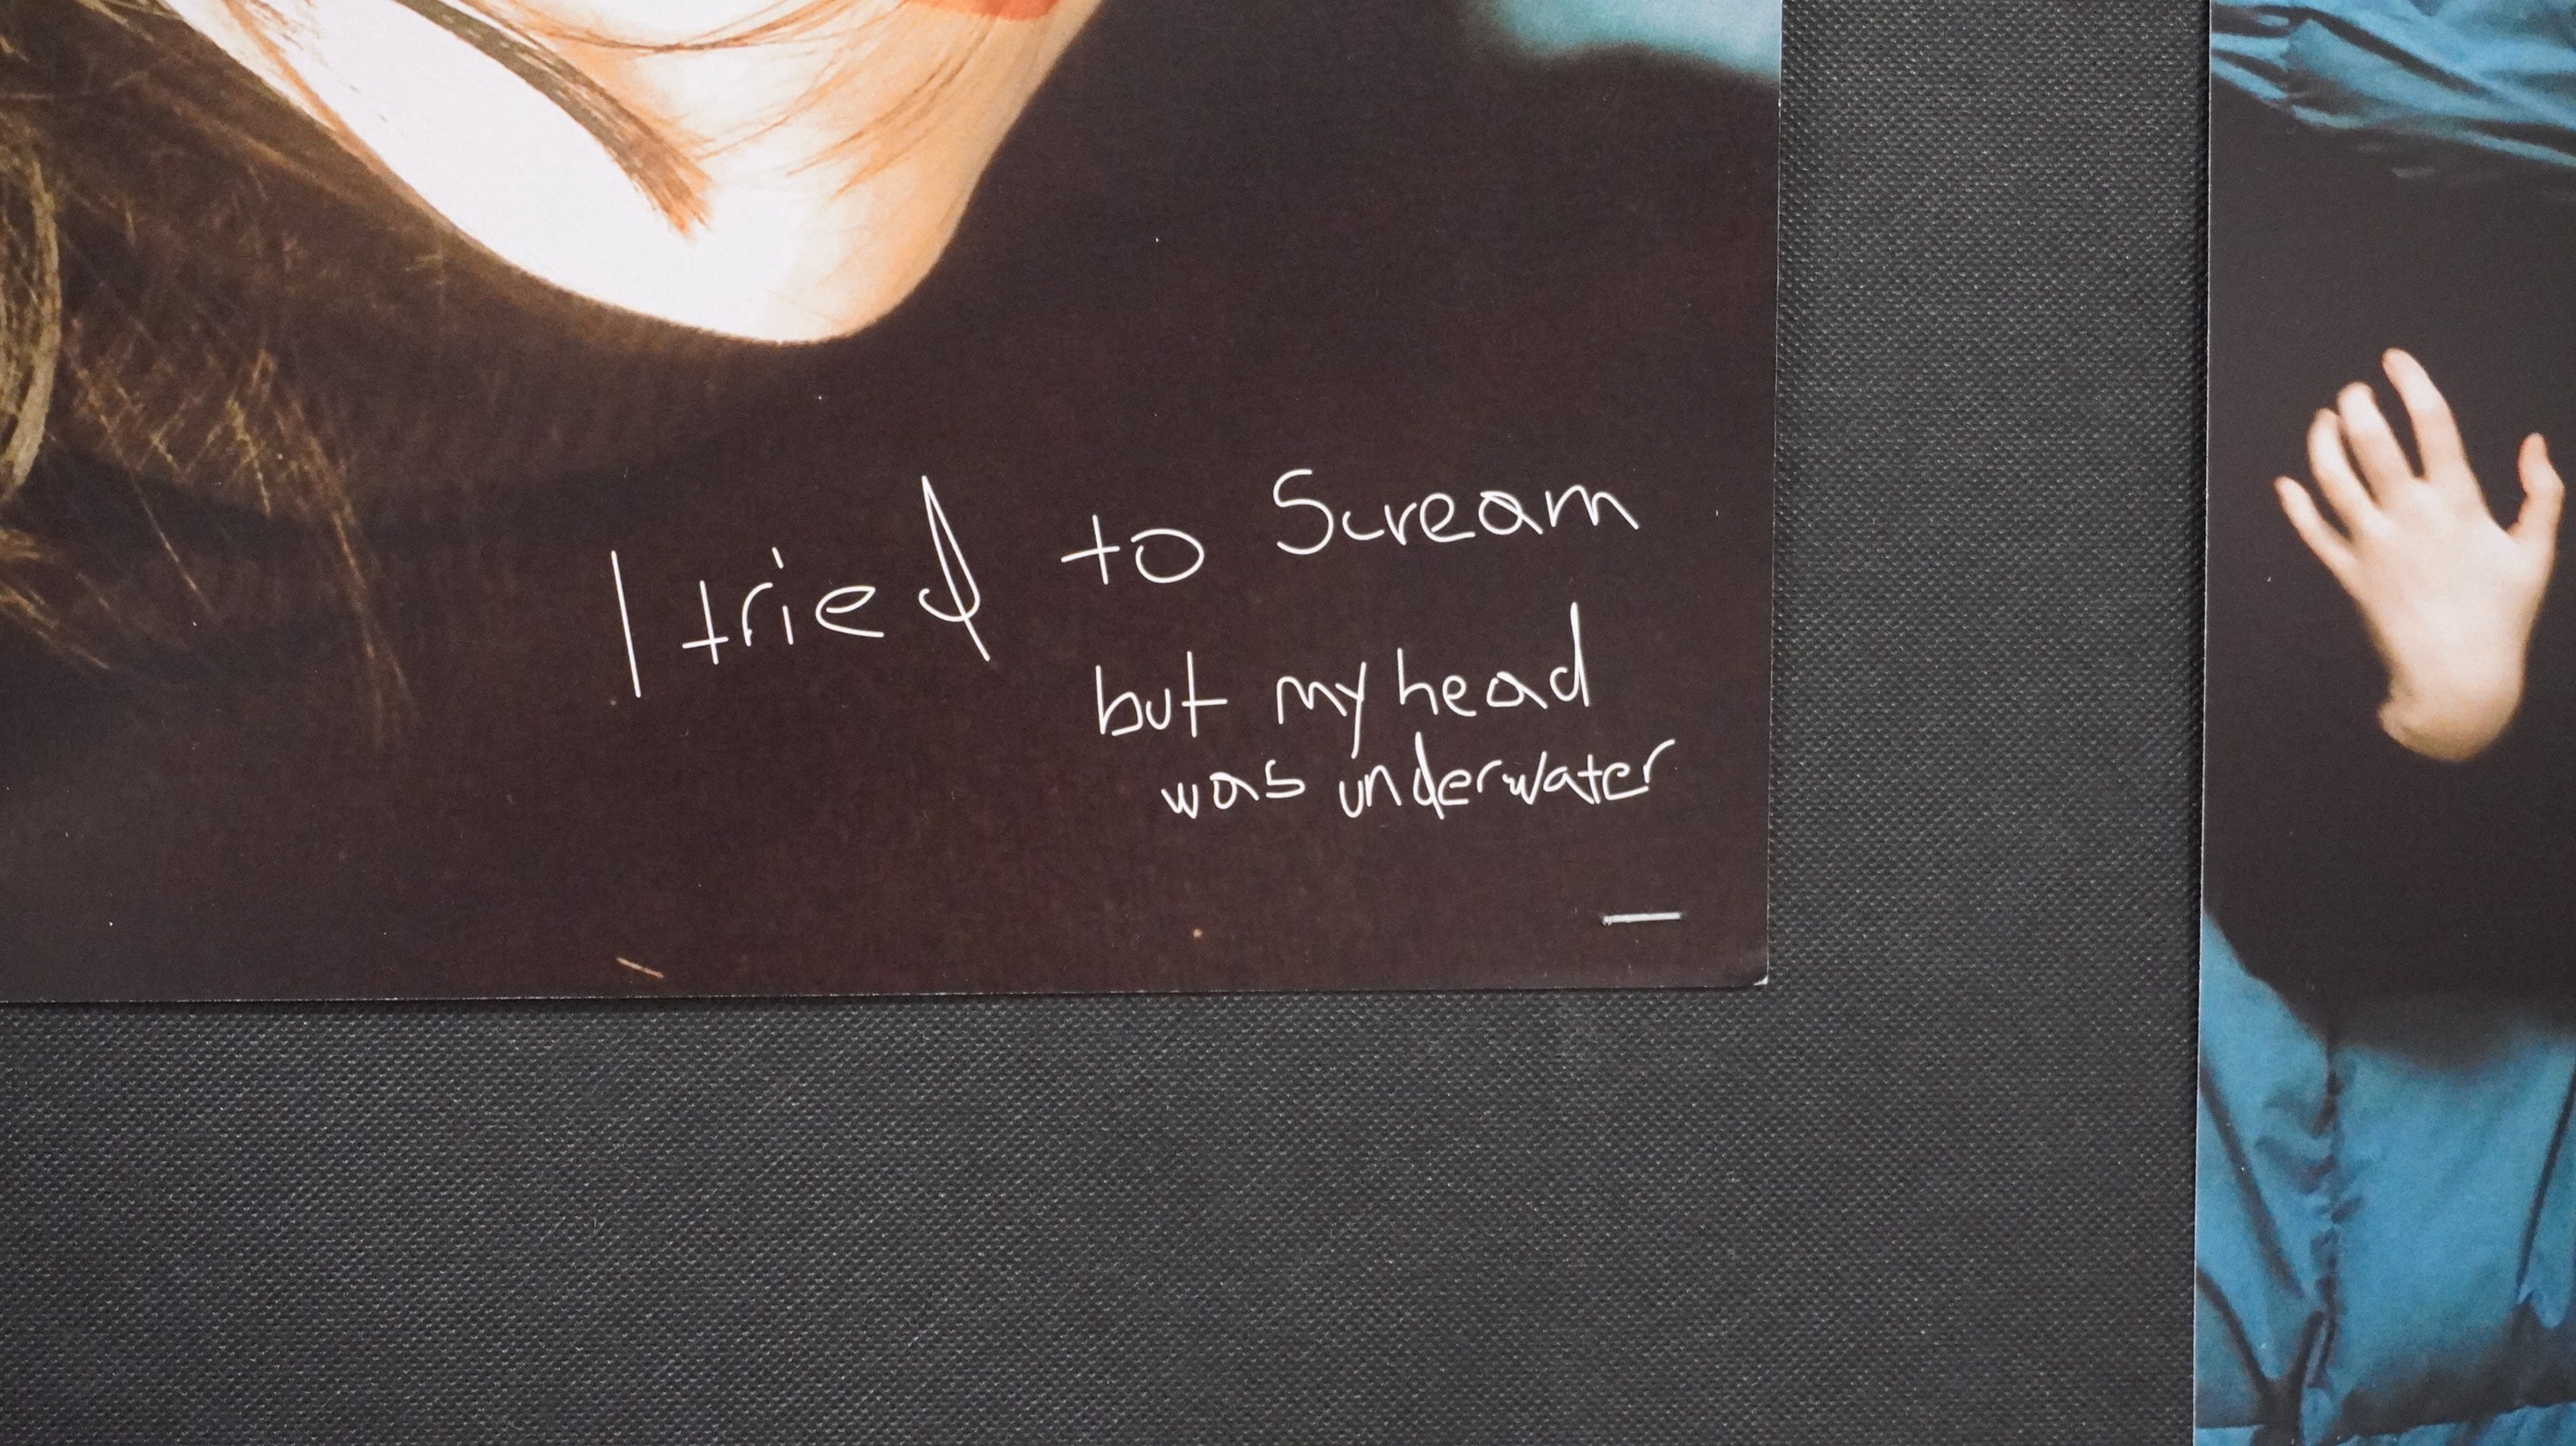 I tried to Scream
but my head
was underwater